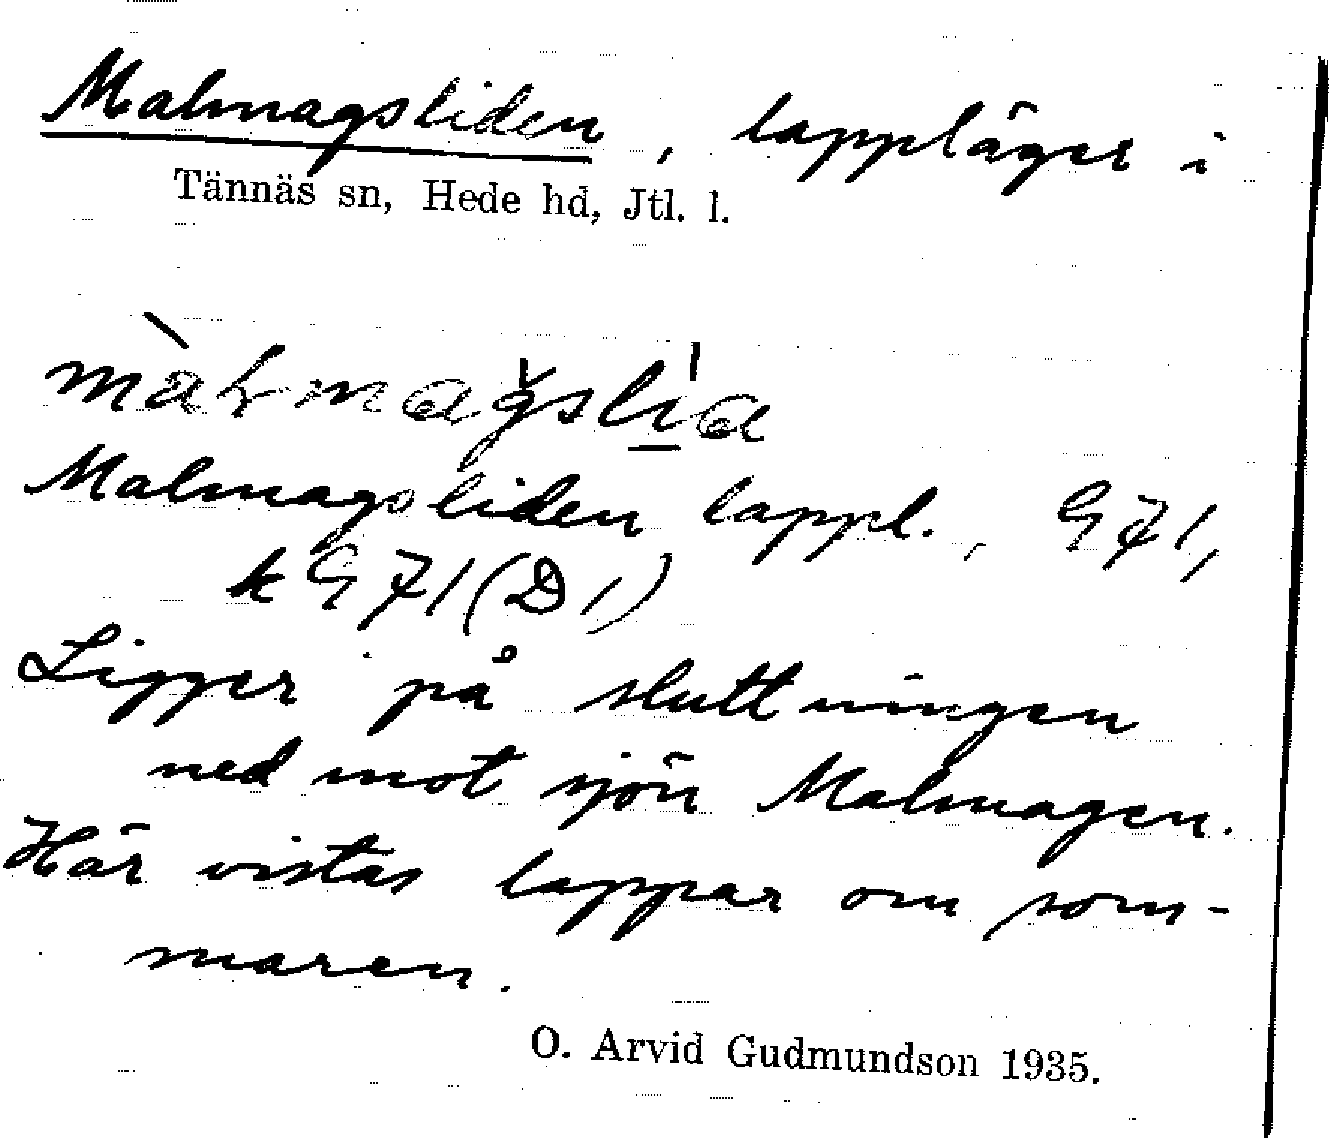 Malmagsliden, lappläger i
Tännäs sn, Hede hd, Jtl. l.
Malmagsliden lappl., G71,
k G71(D1)
Ligger på sluttningen
ned mot sjön Malmagen.
Här vistas lappar om som-
maren.
O. Arvid Gudmundson 1935.